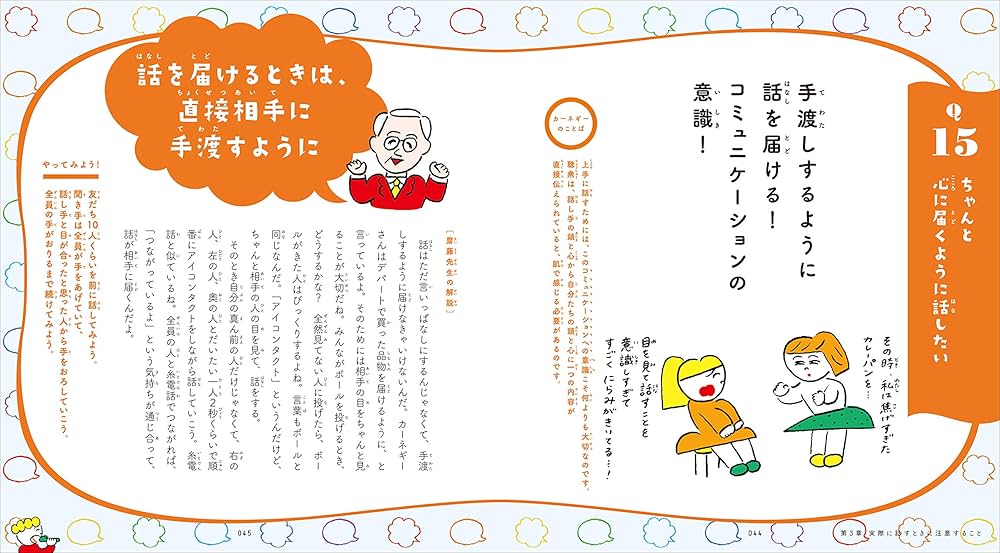 Q
15
ちゃんと
心に届くように話したい
手渡しするように
話を届ける!
コミュニケーションの
意識!
カーネギー
のことば
上手に話すためには、このコミュニケーションへの意識こそ何よりも大切なのです。
聴衆は、話し手の頭と心から自分たちの頭と心に一つの内容が
直接伝えられていると、肌で感じる必要があるのです。
その時、私は焦げすぎた
カレーパンを…
目を見て話すことを
意識しすぎて
すごくにらみがきいてる…!
044
第3章 実際に話すときに注意すること
話を届けるときは、
直接相手に
手渡すように
[齋藤先生の解説]
話はただ言いっぱなしにするんじゃなくて、手渡
しするように届けなきゃいけないんだ。カーネギー
さんはデパートで買った品物を届けるように、と
言っているよ。そのためには相手の目をちゃんと見
ることが大切だね。みんながボールを投げるとき、
どうするかな? 全然見てない人に投げたら、ボー
ルがきた人はびっくりするよね。言葉もボールと
同じなんだ。「アイコンタクト」というんだけど、
ちゃんと相手の人の目を見て、話をする。
そのとき自分の真ん前の人だけじゃなくて、右の
人、左の人、奥の人とだいたい一人2秒くらいで順
番にアイコンタクトをしながら話していこう。糸電
話と似ているね。全員の人と糸電話でつながれば、
「つながっているよ」という気持ちが通じ合って、
話が相手に届くんだよ。
やってみよう!
友だち10人くらいを前に話してみよう。
聞き手は全員が手をあげていて、
話し手と目が合ったと思った人から手をおろしていこう。
全員の手がおりるまで続けてみよう。
045